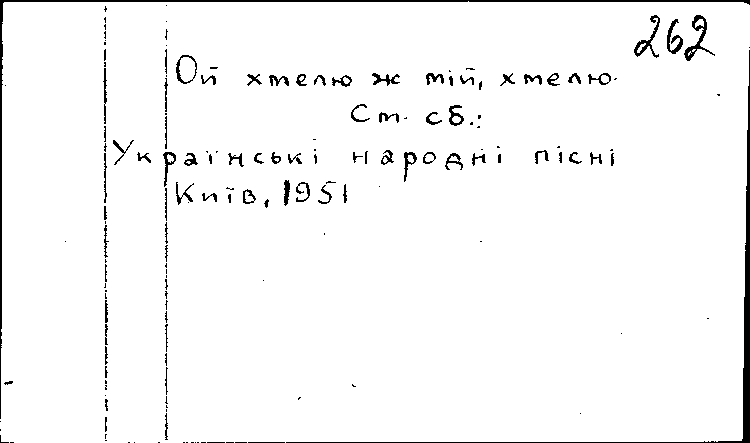 262
Ой хмелю ж мій, хмелю.
См. сб.:
Українські народні пісні
Київ, 1951